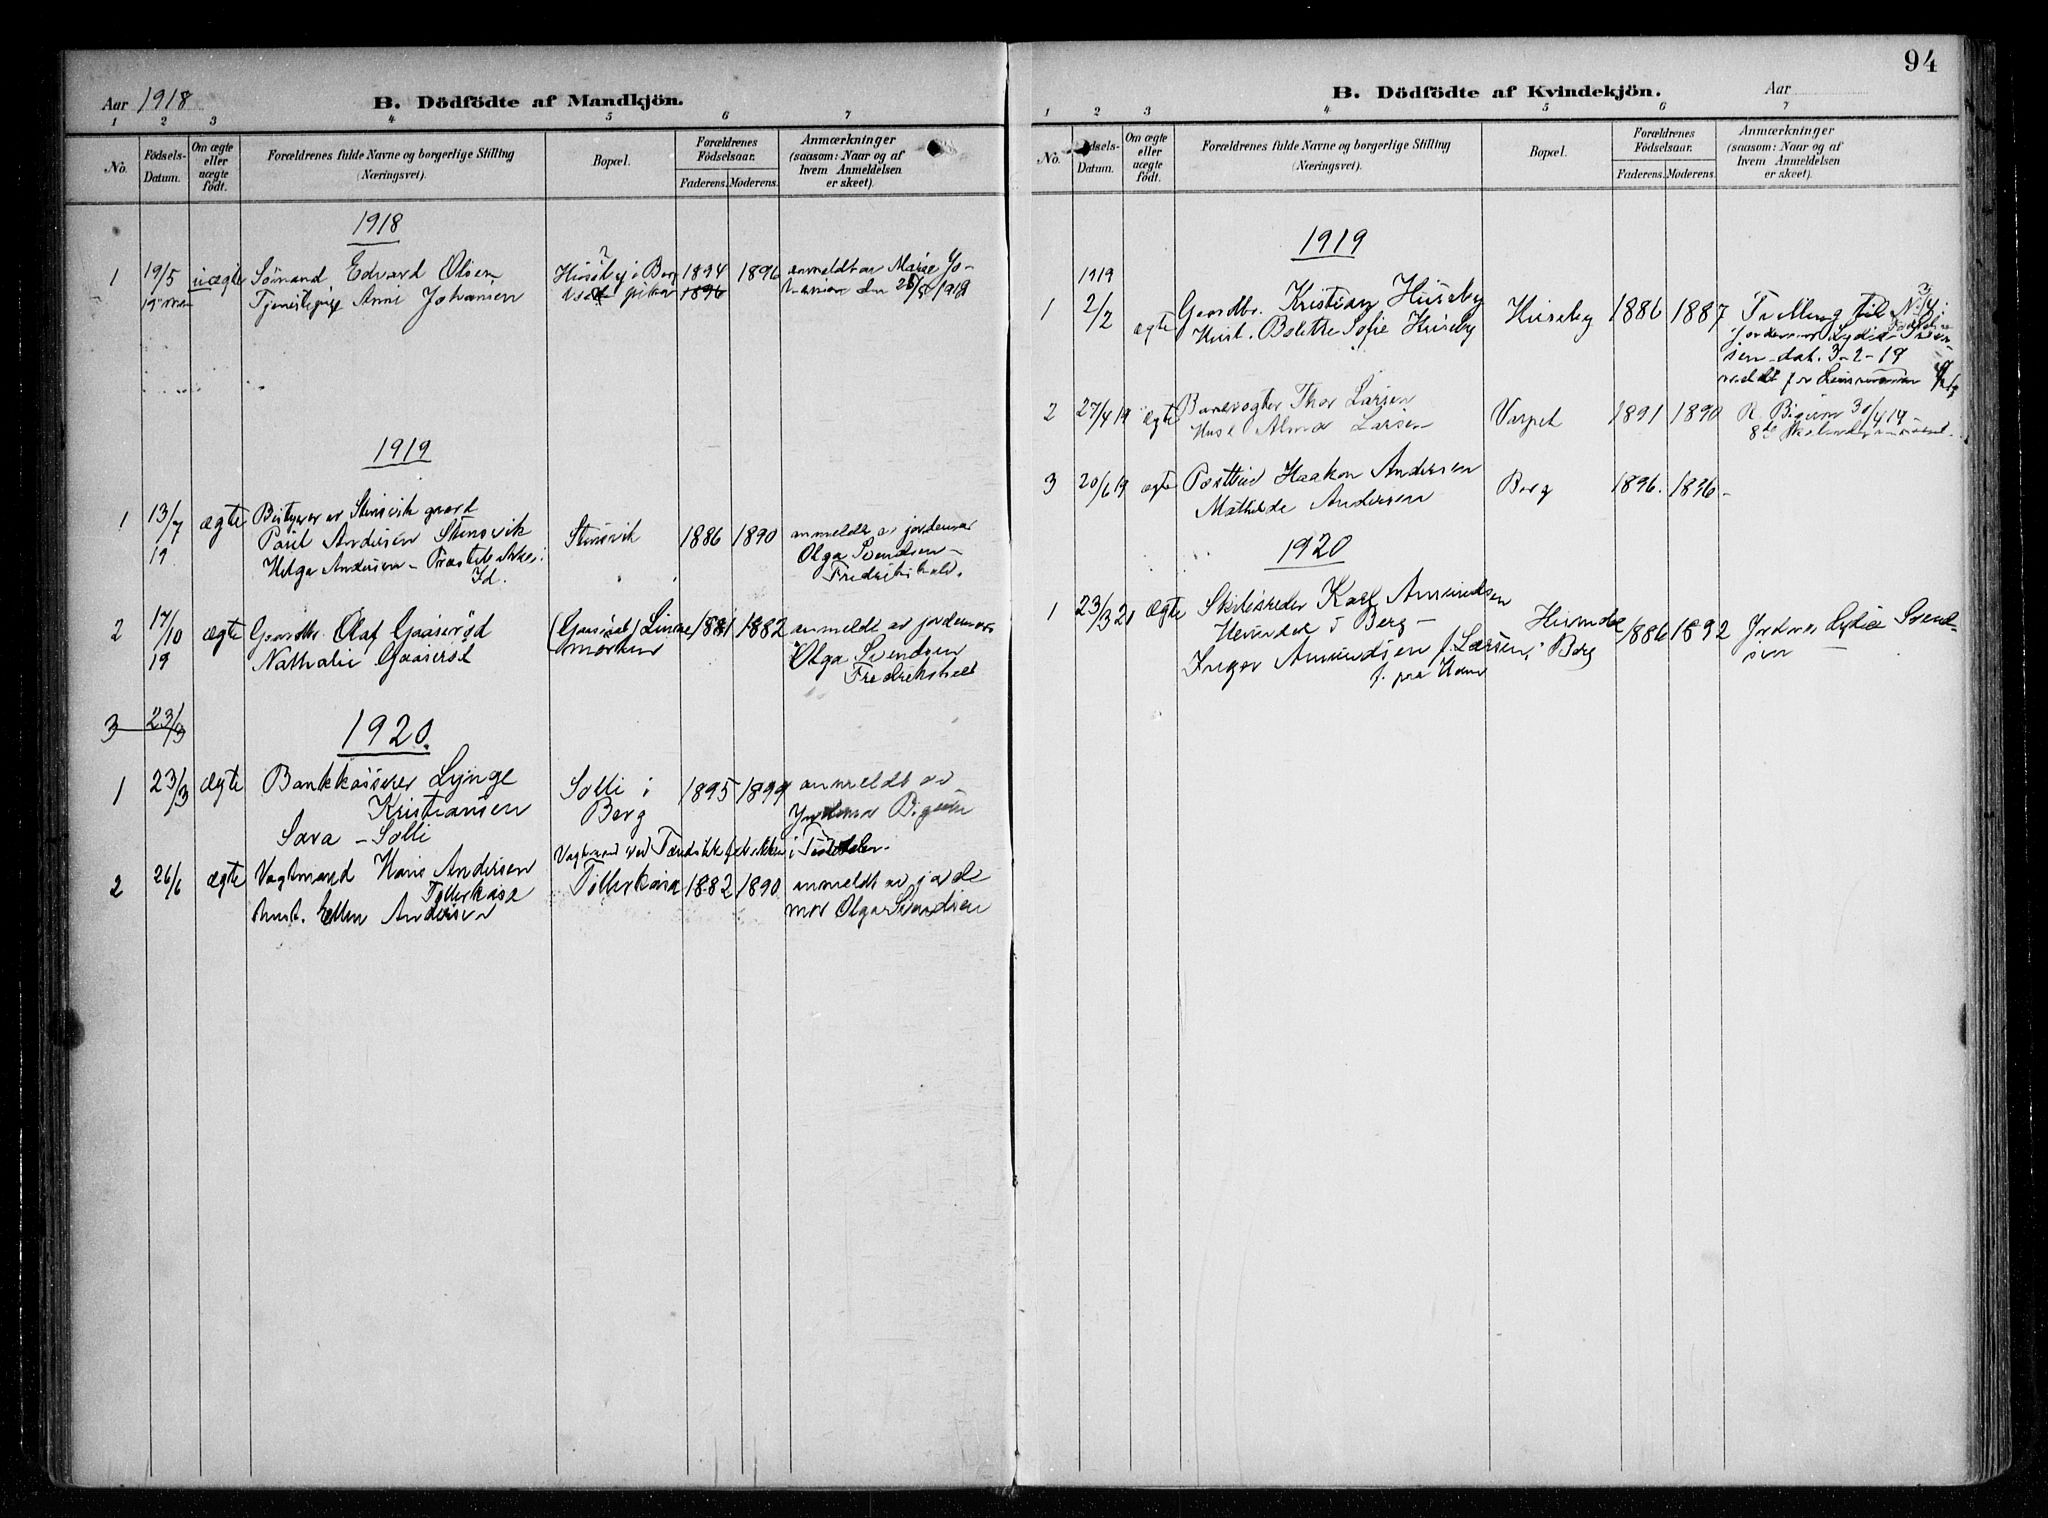 Aar 1918
B. Dödfödte af Mandkjön.
1 2 3 4 5 6 7
No.
Födsels-Datum.
Om ægte eller uægte födt.
Forældrenes fulde Navne og borgerlige Stilling
(Næringsvei).
Bopæl.
Forældrenes Födselsaar.
Faderens. Moderens.
Anmærkninger
(saasom: Naar og af
hvem Anmeldelsen
er skeet).
1918
1 19/5 uægte Sømand Edvard Olsen Huseby i Berg 1894 1896 anmeldt av Marie Jo-
Tjenestepige Anni Johansen 1896 hansen den 1918
1919
1 13/7 19 ægte Bestyrer av Stensvik gaard
Paul Andersen Stensvik Stensvik 1886 1890 anmeldt av jordemor
Helga Andersen Olga Svendsen
Id. Fredrikshald.
2 17/10 19 ægte Gaardbr. Olaf Gaaserød 1881 1882 anmeldt av jordemor
Nathalie Gaaserød marken Olga Svendsen
Fredrikshald
3 23/3
1920.
1 23/3 ægte Bankkasserer Lynge Solli i 1895 1899 anmeldt av
Kristiansen Berg Jordmor Bigum
Sara - Solli
Vagtmand ved i Tistedalen.
2 26/6 ægte Vagtmand Hans Andersen Tollerkasa 1882 1890 anmeldt av jorde
Tollerkasa mor Olga Svendsen
Hust. Ellen Andersen
94
B. Dödfödte af Kvindekjön.
Aar
1 2 3 4 5 6 7
No.
Födsels-Datum.
Om ægte eller uægte födt.
Forældrenes fulde Navne og borgerlige Stilling
(Næringsvei).
Bopæl.
Forældrenes Födselsaar.
Faderens. Moderens.
Anmærkninger
(saasom: Naar og af
hvem Anmeldelsen
er skeet).
1919
1919
1 2/2 ægte Gaardbr. Kristian Huseby Huseby 1886 1887 Tvilling til No 4
Hust. Bolette Sofie Huseby jordemor Lydia
sen dat. 3-2-19
meldt for Lensmanden
2 27/4 19 ægte Banevogter Thor Larsen Varpet 1891 1890 R. Bigum 30/4 19
Hust Alma Larsen
3 20/6 19 ægte Postbud Haakon Andersen Berg 1896. 1896
Mathilde Andersen
1920
1 23/3 21 ægte Karl Amundsen
Berg Berg 1886 1892 Jordmor Lydia Svend-
Inger Amundsen f. Larsen, sen
f. paa